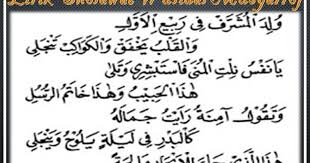 Lirik Sholawat Wulidal Musyarrof
وُلِدَ الْمُشَرَّفُ فِي رَبِيْعِ الْأَوَّلِ
وَالْقَلْبُ يَخْفَقُ وَالْكَوَاكِبُ تَنْجَلِي
يَانَفْسُ نِلْتِ الْمُنَى فَاسْتَبْشِرِي وَتَلَى
هٰذَا الْحَبِيْبُ وَهٰذَا خَاتَمُ الرُّسُلِ
وَتَقُوْلُ آمِنَةُ رَأَيْتُ جَمَالَهُ
كَالْبَدْرِ فِي لَيْلَةٍ يَلُوْحُ وَيَنْجَلِي